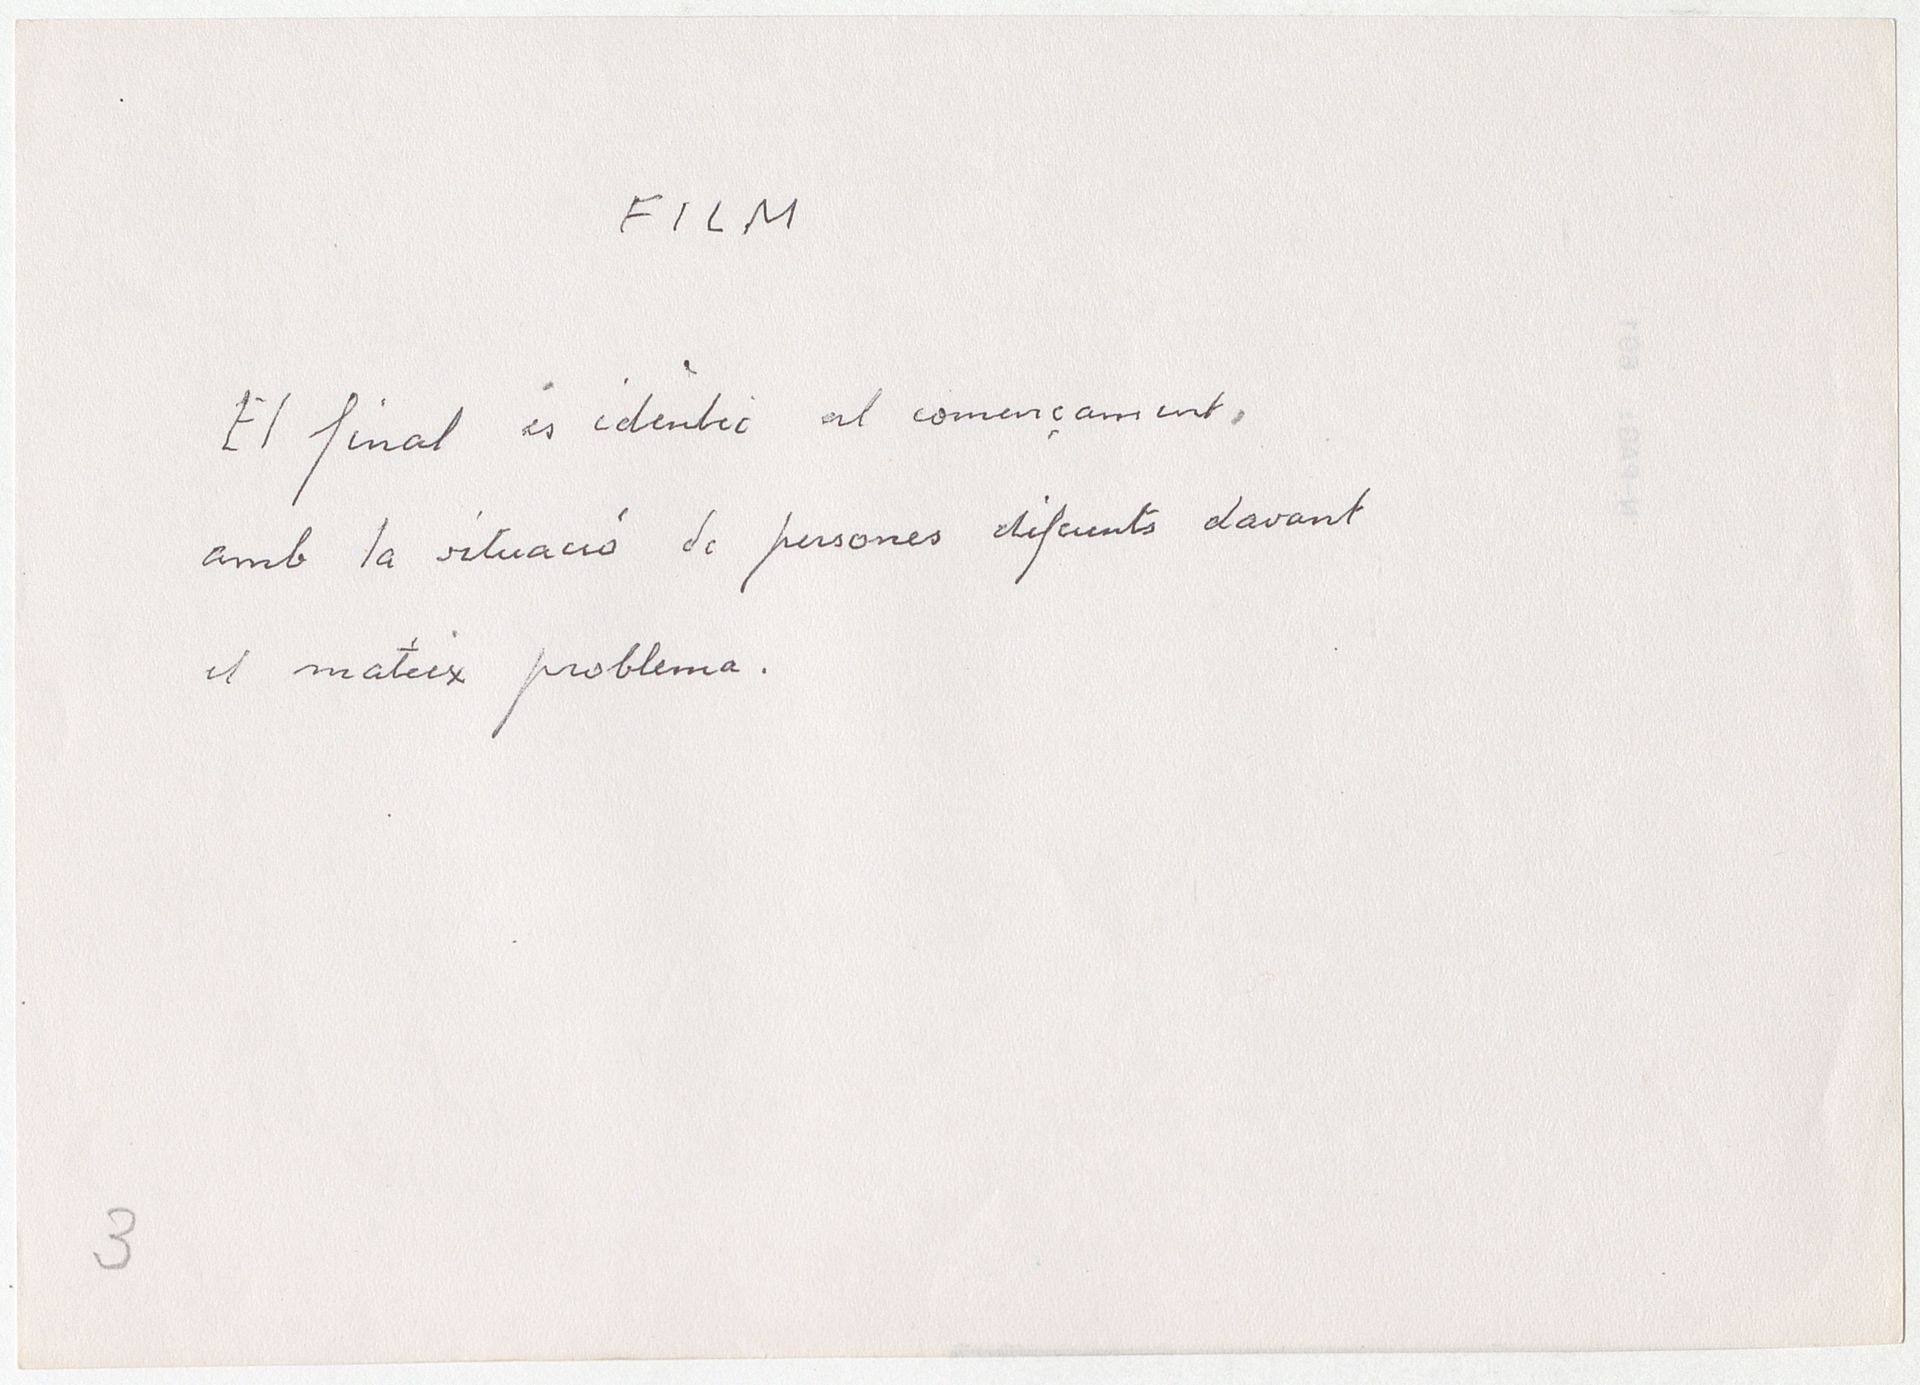 FILM
El final és idèntic al començament,
amb la situació de persones diferents davant
el mateix problema.
3